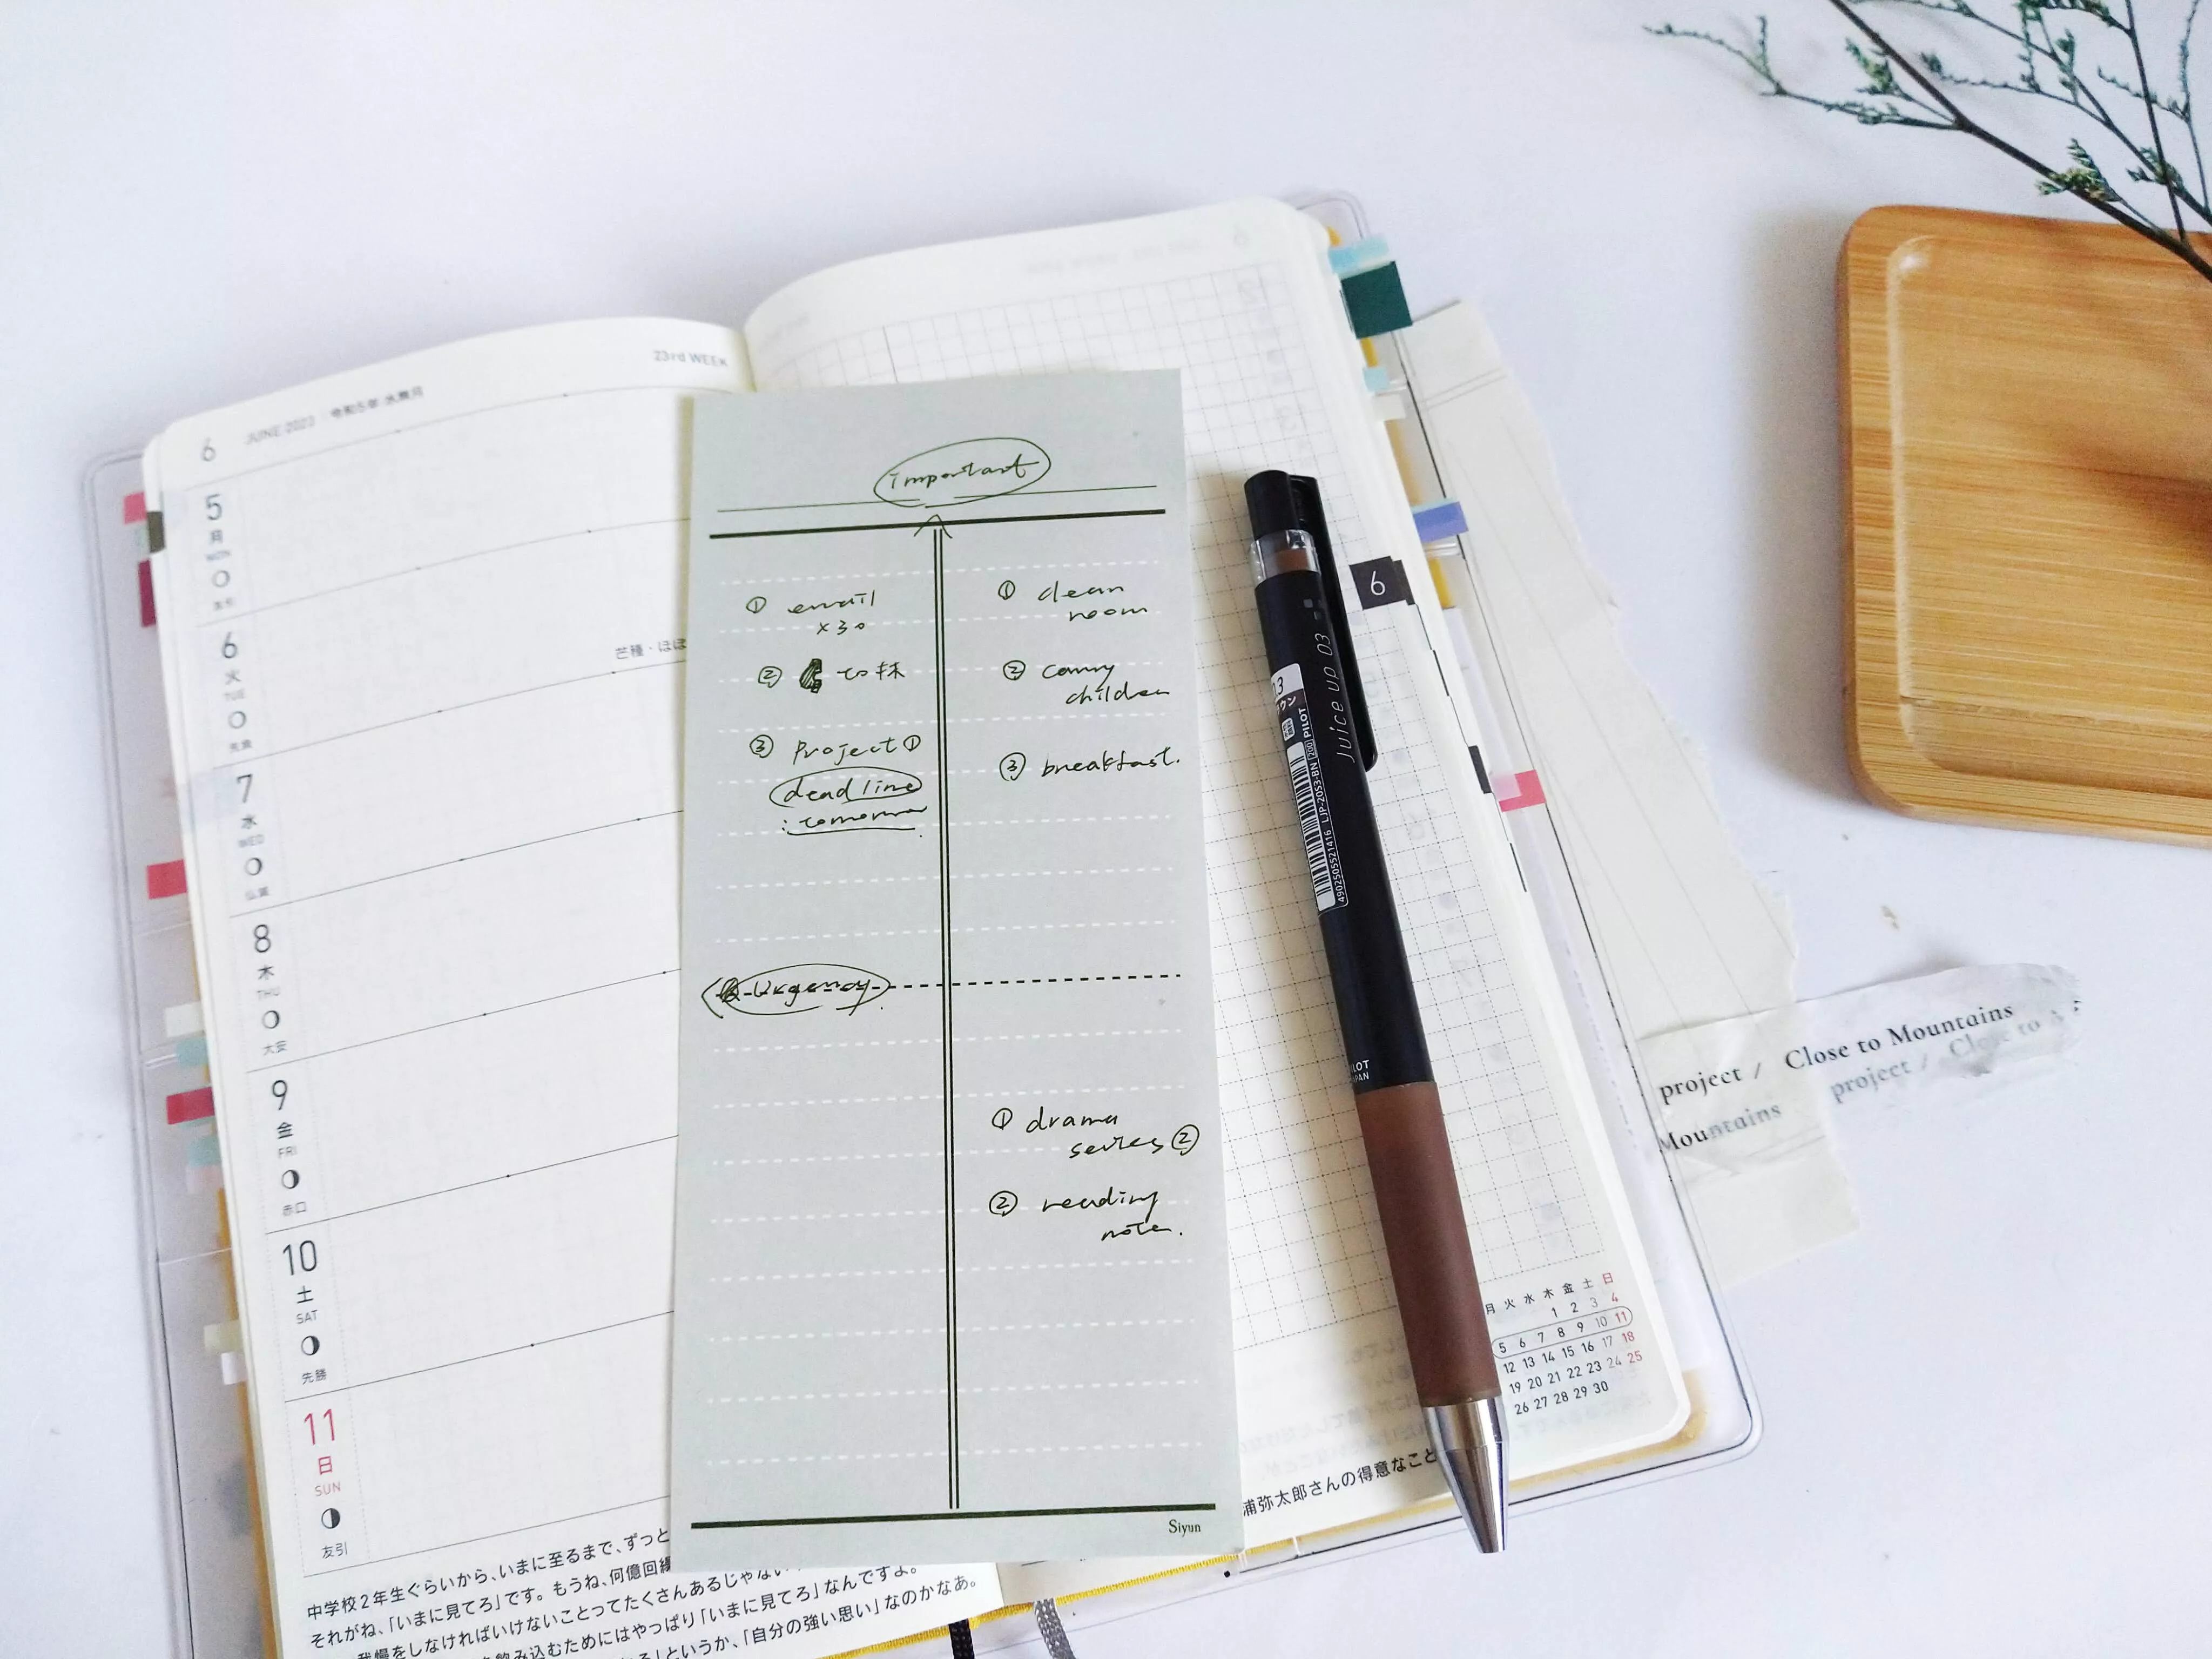 6 JUNE 2023 令和5年 水無月
23rd WEEK
5
月
MON
6
火
TUE
先負
芒種・ほぼ
7
水
WED
仏滅
8
木
THU
大安
9
金
FRI
赤口
10
土
SAT
先勝
11
日
SUN
友引
中学校2年生ぐらいから、いまに至るまで、ずっと
それがね、「いまに見てろ」です。もうね、何億回繰
我慢をしなければいけないことってたくさんあるじゃない
を飲み込むためにはやっぱり「いまに見てろ」なんですよ。
る」というか、「自分の強い思い」なのかなあ。
important
① email
×30
②
③ Project①
deadline
: tomorrow
① clean
room
② carry
children
③ breakfast.
Urgency
① drama
series ②
② reading
note.
Siyun
6
Juice up 03
PILOT
LJP-20S3-BN
4902505521416
月 火 水 木 金 土 日
1 2 3 4
5 6 7 8 9 10 11
12 13 14 15 16 17 18
19 20 21 22 23 24 25
26 27 28 29 30
浦弥太郎さんの得意なこと
project / Close to Mountains
Mountains project / Close to